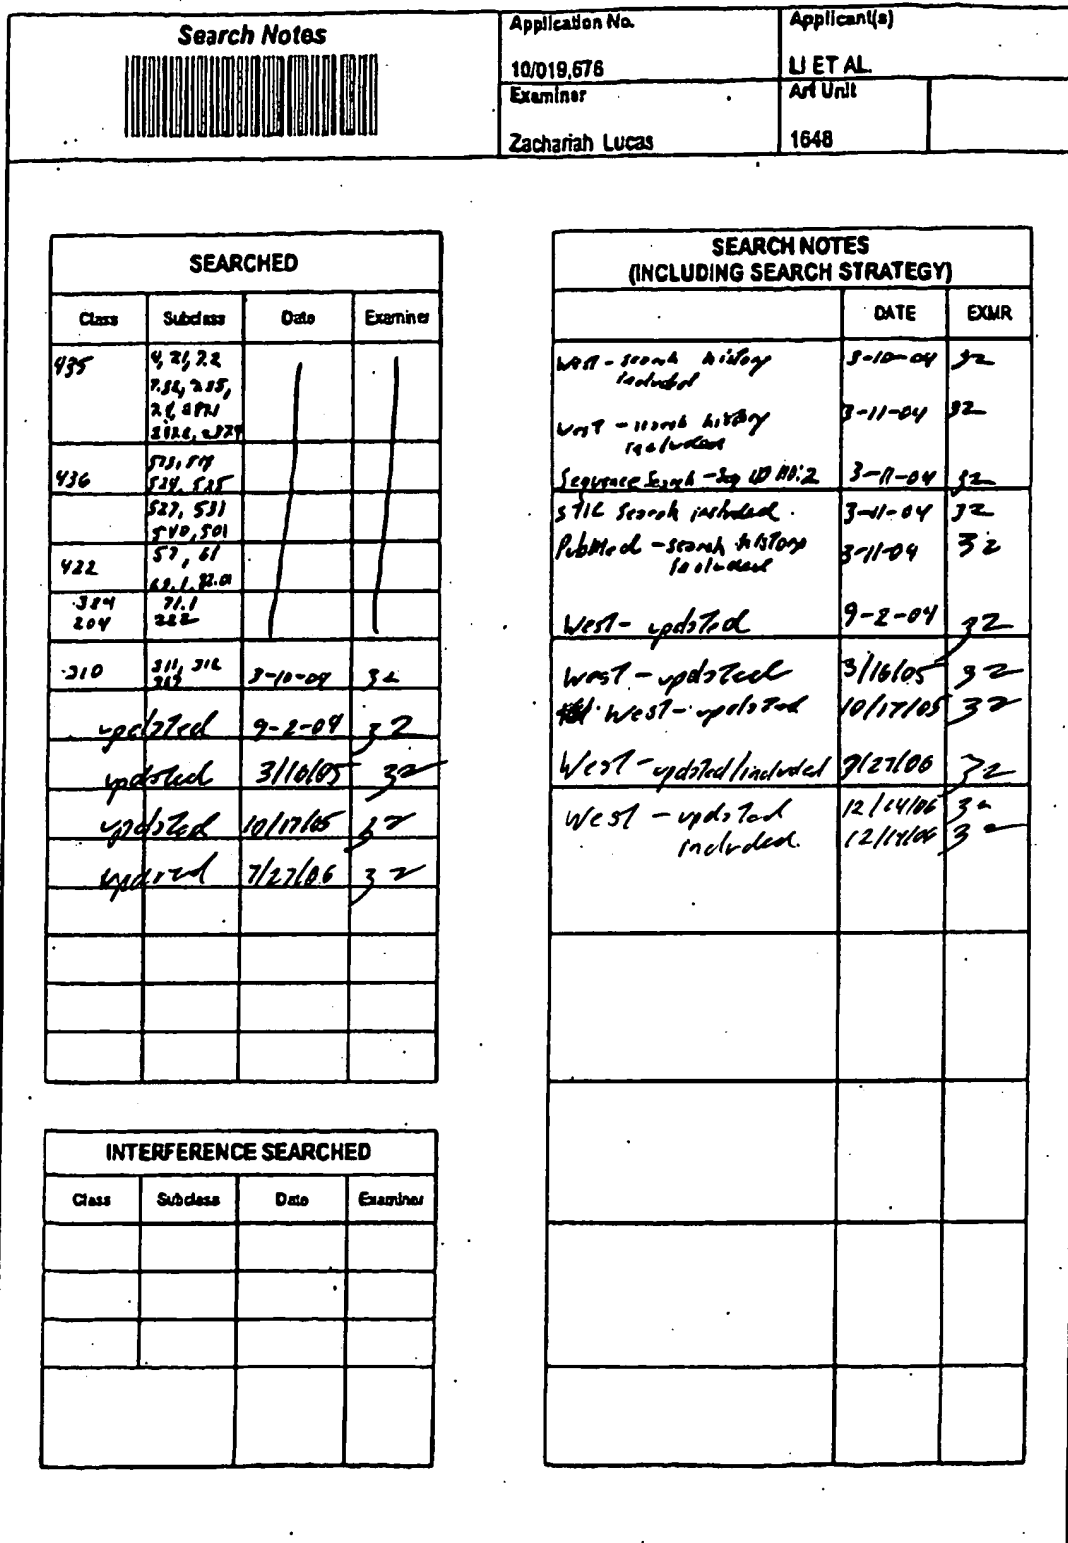 Search Notes
Application No.
Applicant(s)
10/019,676
LI ET AL.
Examiner
Art Unit
Zachariah Lucas
1648
SEARCHED
Class Subclass Date Examiner
435 4, 7.1, 7.2
436
524, 525
527, 531
540, 501
422 57, 61
204 222
310 311, 312 3-10-04 32
updated 9-2-04 32
updated 3/16/05 32
updated 10/17/05 32
updated 7/27/06 32
INTERFERENCE SEARCHED
Class Subclass Date Examiner
SEARCH NOTES
(INCLUDING SEARCH STRATEGY)
DATE EXMR
West - search history 3-10-04 32
included
West - search history 3-11-04 32
included
Sequence Search - Seq ID NO:2 3-11-04 32
STIC Search included. 3-11-04 32
PubMed - search history 3-11-04 32
included
West - updated 9-2-04 32
West - updated 3/16/05 32
West - updated 10/17/05 32
West - updated/included 7/27/06 32
West - updated 12/14/06 32
included. 12/14/06 32